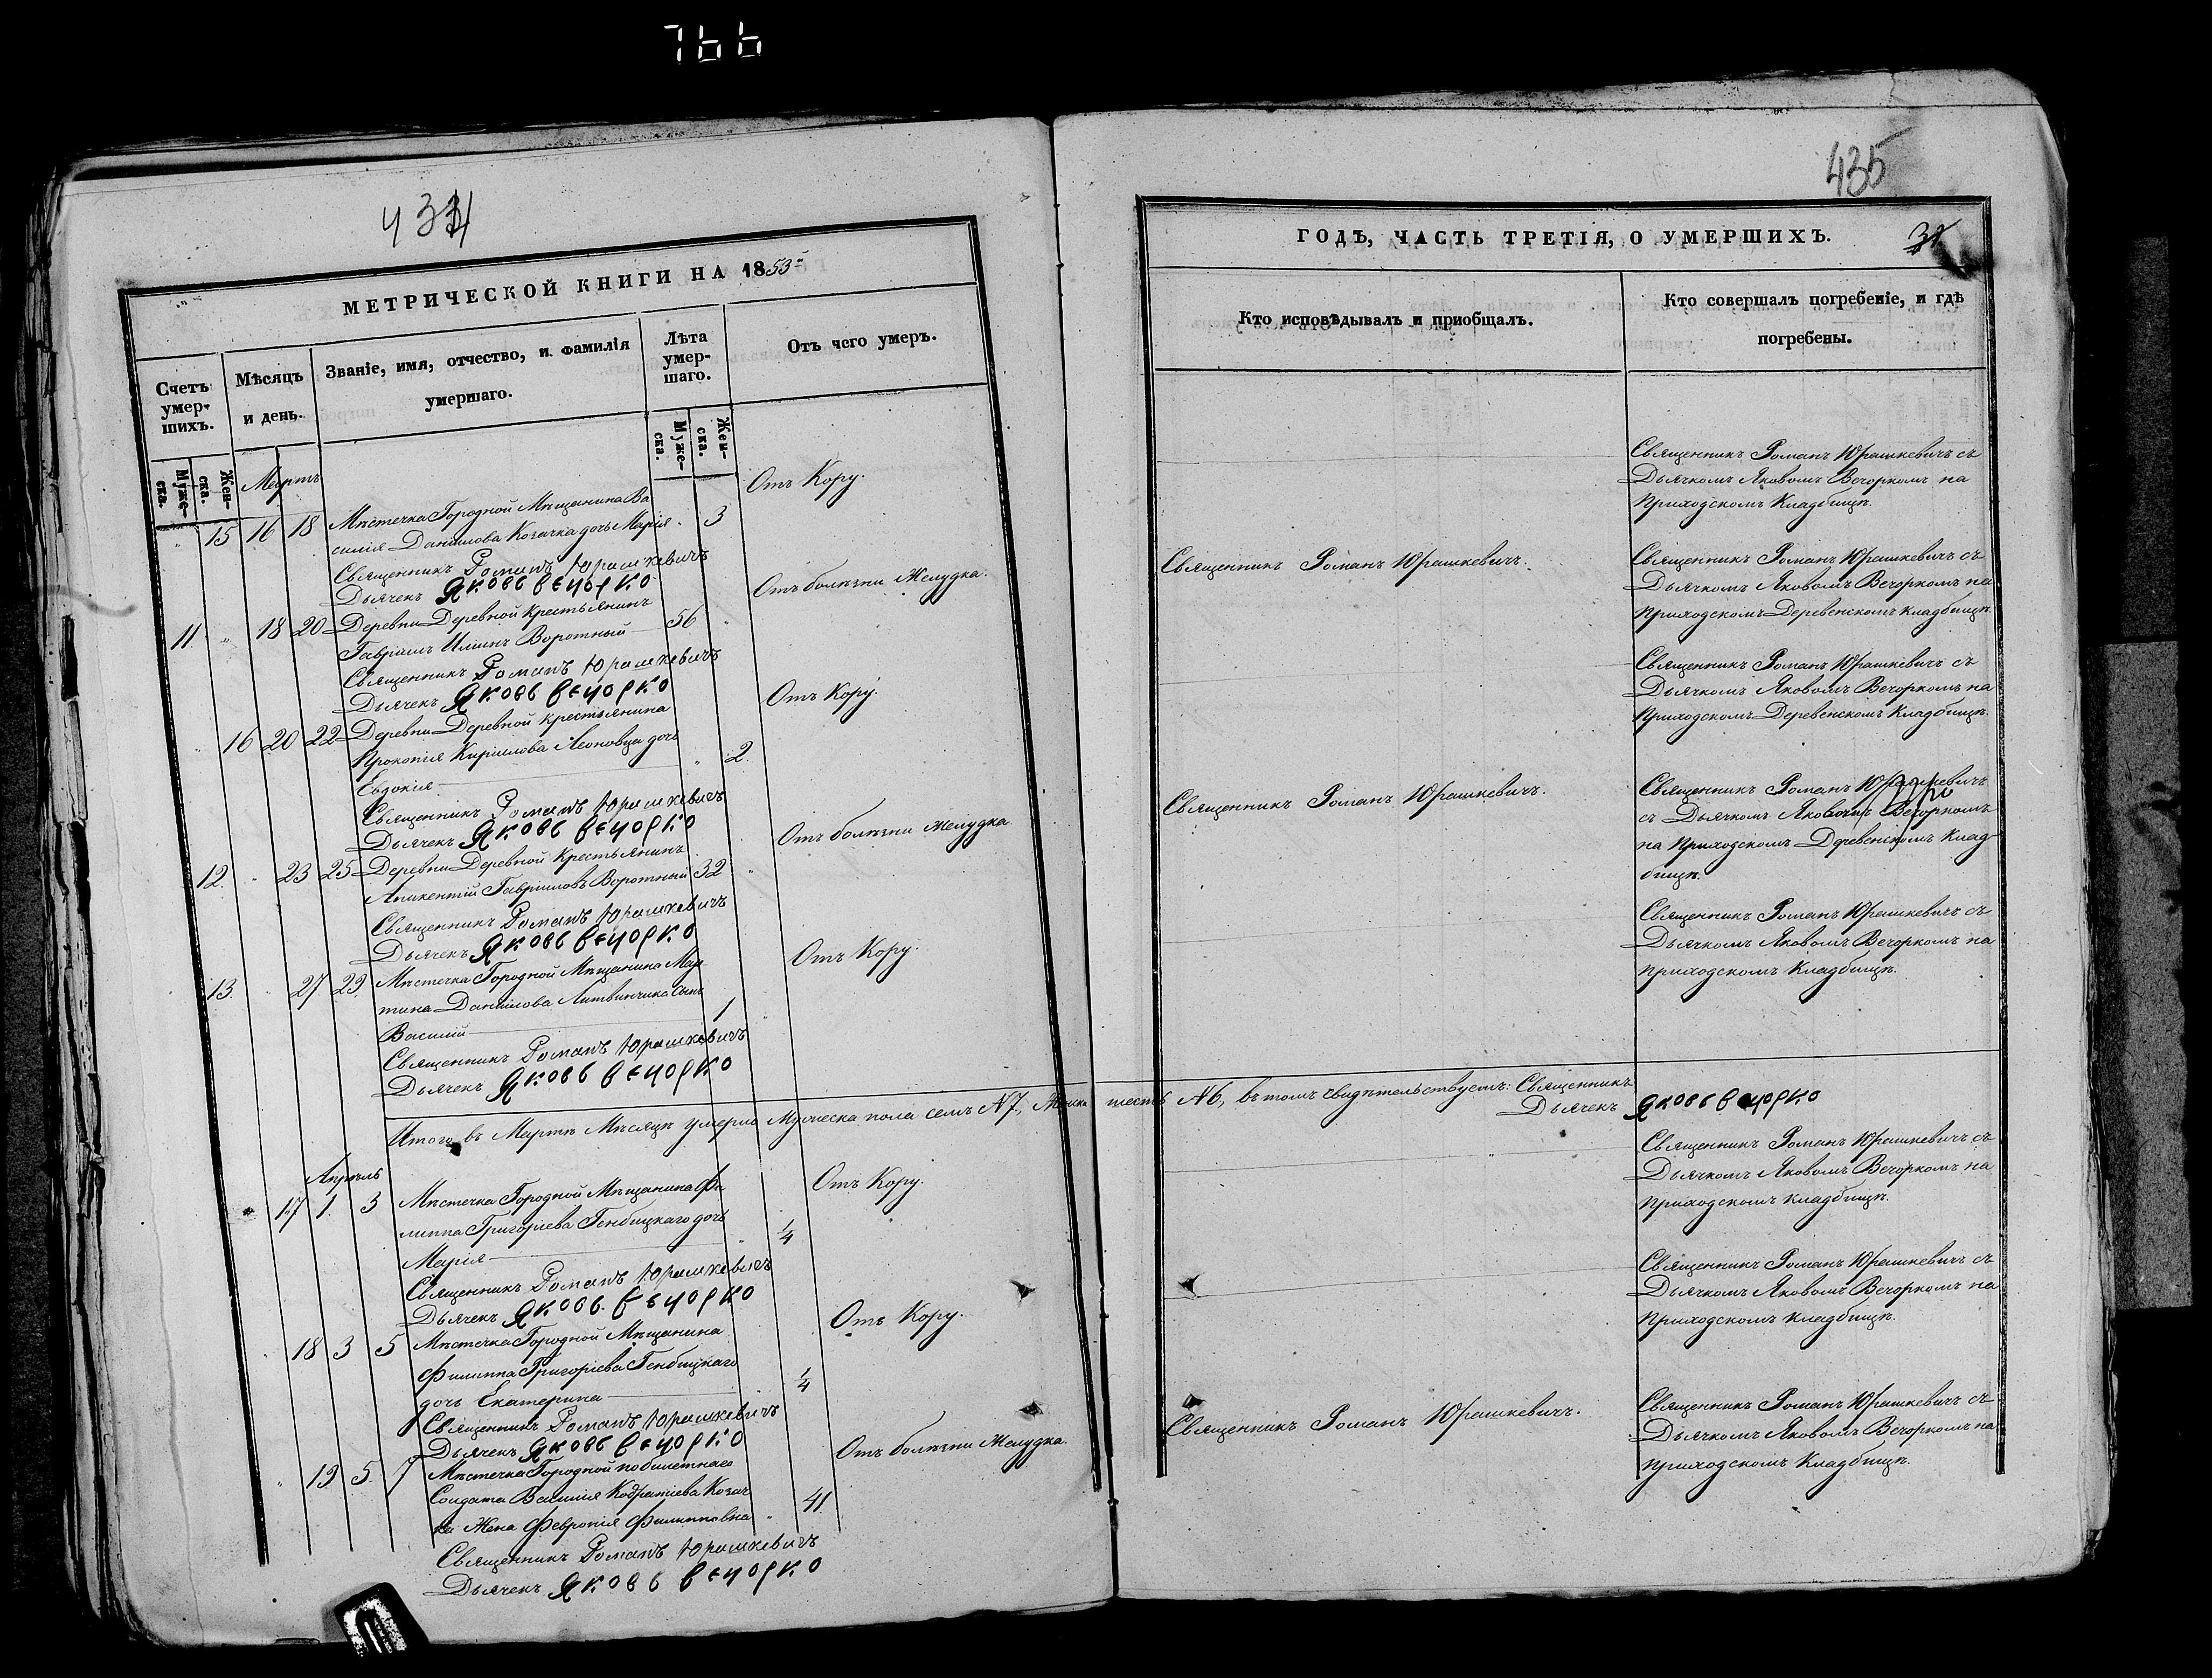 766
434
МЕТРИЧЕСКОЙ КНИГИ НА 1853
Счетъ умер-шихъ.
Мѣсяцъ и день.
Званіе, имя, отчество, и фамилія умершаго.
Лѣта умер-шаго.
Отъ чего умеръ.
Муже-ска.
Жен-ска.
Муже-ска.
Жен-ска.
Мартъ
" 15 16 18 Мѣстечка Городной Мѣщанина Ва
силія Данилова Козачка дочь Марія 3 Отъ Кору.
Священникъ Романъ Юрашкевичъ
Дьячекъ Яковъ Вечорко
11 " 18 20 Деревни Деревной Крестьянинъ
Гавріилъ Илiинъ Воротный 56 " Отъ болѣзни Желудка.
Священникъ Романъ Юрашкевичъ
Дьячекъ Яковъ Вечорко
" 16 20 22 Деревни Деревной Крестьянина
Прокопія Кирилова Леоновца дочь
Евдокія " 2. Отъ Кору.
Священникъ Романъ Юрашкевичъ
Дьячекъ Яковъ Вечорко
12. " 23 25 Деревни Деревной Крестьянинъ
Аникентій Гавриловъ Воротный 32 " Отъ болѣзни Желудка
Священникъ Романъ Юрашкевичъ
Дьячекъ Яковъ Вечорко
13. " 27 29. Мѣстечка Городной Мѣщанина Мар
тина Данилова Литвинчика сынъ
Василій 1 " Отъ Кору.
Священникъ Романъ Юрашкевичъ
Дьячекъ Яковъ Вечорко
Итого въ Мартѣ Мѣсяцѣ умерло Мужеска пола семъ N7,
Апрѣль
" 17 1. 3 Мѣстечка Городной Мѣщанина Фи
липпа Григоріева Генбицкаго дочь
Марія " 1/4 Отъ Кору.
Священникъ Романъ Юрашкевичъ
Дьячекъ Яковъ Вечорко
" 18 3 5 Мѣстечка Городной Мѣщанина
Филиппа Григоріева Генбицкаго
дочь Екатерина " 1/4 Отъ Кору.
Священникъ Романъ Юрашкевичъ
Дьячекъ Яковъ Вечорко
" 19 5. 7 Мѣстечка Городной побилетнаго
Солдата Василія Кодратіева Козач
ка Жена Февронія Филипповна " 41. Отъ болѣзни Желудка.
Священникъ Романъ Юрашкевичъ
Дьячекъ Яковъ Вечорко
435
ГОДЪ, ЧАСТЬ ТРЕТІЯ, О УМЕРШИХЪ.
Кто исповѣдывалъ и приобщалъ.
Кто совершалъ погребеніе, и гдѣ погребены.
Священникъ Романъ Юрашкевичъ съ
Дьячкомъ Яковомъ Вечоркомъ на
Приходскомъ Кладбищѣ.
Священникъ Романъ Юрашкевичъ.
Священникъ Романъ Юрашкевичъ съ
Дьячкомъ Яковомъ Вечоркомъ на
Приходскомъ Деревенскомъ Кладбищѣ
Священникъ Романъ Юрашкевичъ съ
Дьячкомъ Яковомъ Вечоркомъ на
Приходскомъ Деревенскомъ Кладбищѣ.
Священникъ Романъ Юрашкевичъ.
Священникъ Романъ Юрашкевичъ
съ Дьячкомъ Яковомъ Вечоркомъ
на Приходскомъ Деревенскомъ Клад
бищѣ.
Священникъ Романъ Юрашкевичъ съ
Дьячкомъ Яковомъ Вечоркомъ на
приходскомъ Кладбищѣ.
шесть N6, въ томъ свидѣтельствуетъ: Священникъ
Дьячекъ Яковъ Вечорко
Священникъ Романъ Юрашкевичъ съ
Дьячкомъ Яковомъ Вечоркомъ на
Приходскомъ Кладбищѣ.
Священникъ Романъ Юрашкевичъ съ
Дьячкомъ Яковомъ Вечоркомъ на
Приходскомъ Кладбищѣ.
Священникъ Романъ Юрашкевичъ.
Священникъ Романъ Юрашкевичъ съ
Дьячкомъ Яковомъ Вечоркомъ на
Приходскомъ Кладбищѣ.